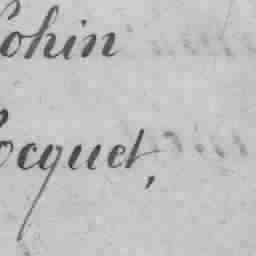 Cohin
Cocquet,